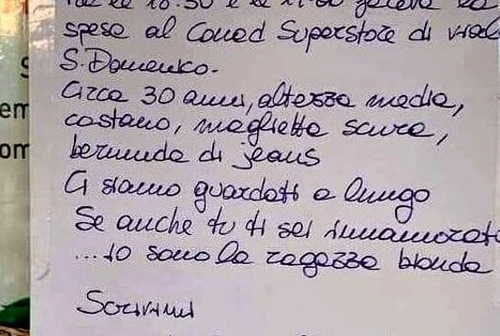 spesa al Conad Superstore di viale
S. Domenico.
Circa 30 anni, altezza media,
castano, maglietta scura,
bermuda di jeans
Ci siamo guardati a lungo
Se anche tu ti sei innamorato
...io sono la ragazza bionda
Scrivimi
em
om